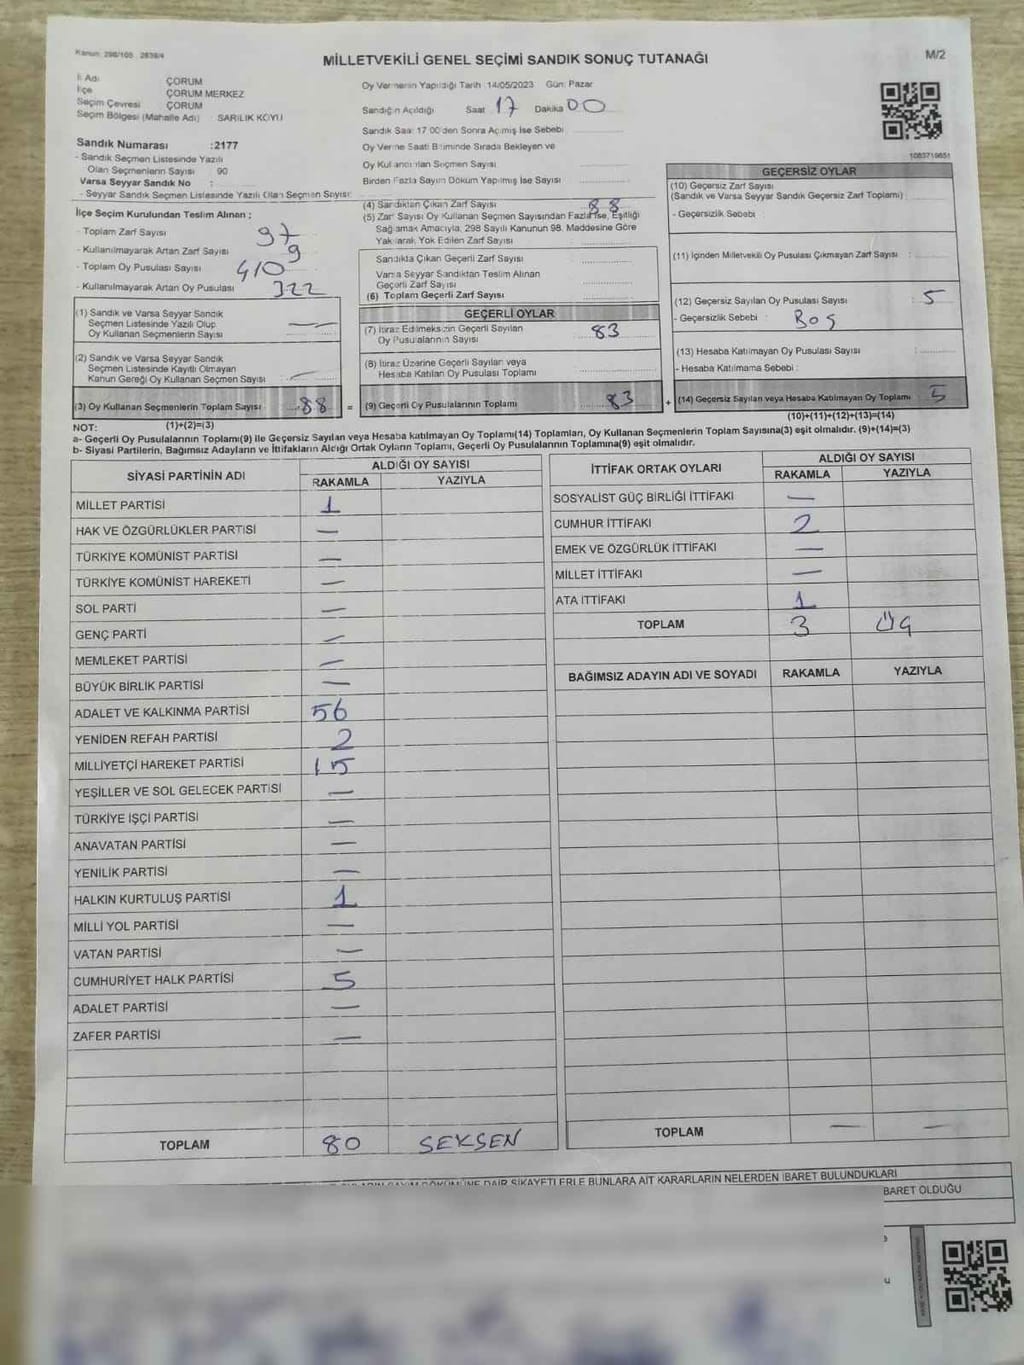 Kanun: 298/105 2839/4
MİLLETVEKİLİ GENEL SEÇİMİ SANDIK SONUÇ TUTANAĞI
M/2
İl Adı ÇORUM
İlçe ÇORUM MERKEZ
Seçim Çevresi ÇORUM
Seçim Bölgesi (Mahalle Adı) : SARILIK KÖYÜ
Sandık Numarası :2177
- Sandık Seçmen Listesinde Yazılı
Olan Seçmenlerin Sayısı 90
Varsa Seyyar Sandık No :
- Seyyar Sandık Seçmen Listesinde Yazılı Olan Seçmen Sayısı:
Oy Vermenin Yapıldığı Tarih 14/05/2023 Gün: Pazar
Sandığın Açıldığı Saat 17 Dakika 00
Sandık Saat 17 00'den Sonra Açılmış İse Sebebi
Oy Verme Saati Bitiminde Sırada Bekleyen ve
Oy Kullandırılan Seçmen Sayısı
Birden Fazla Sayım Döküm Yapılmış İse Sayısı
1083719651
İlçe Seçim Kurulundan Teslim Alınan ;
- Toplam Zarf Sayısı 97
- Kullanılmayarak Artan Zarf Sayısı 9
- Toplam Oy Pusulası Sayısı 410
- Kullanılmayarak Artan Oy Pusulası 322
(1) Sandık ve Varsa Seyyar Sandık
Seçmen Listesinde Yazılı Olup
Oy Kullanan Seçmenlerin Sayısı —
(2) Sandık ve Varsa Seyyar Sandık
Seçmen Listesinde Kayıtlı Olmayan
Kanun Gereği Oy Kullanan Seçmen Sayısı —
(3) Oy Kullanan Seçmenlerin Toplam Sayısı 88 =
(1)+(2)=(3)
(4) Sandıktan Çıkan Zarf Sayısı 88
(5) Zarf Sayısı Oy Kullanan Seçmen Sayısından Fazla İse, Eşitliği
Sağlamak Amacıyla, 298 Sayılı Kanunun 98. Maddesine Göre
Yakılarak Yok Edilen Zarf Sayısı
Sandıkta Çıkan Geçerli Zarf Sayısı
Varsa Seyyar Sandıktan Teslim Alınan
Geçerli Zarf Sayısı
(6) Toplam Geçerli Zarf Sayısı
GEÇERLİ OYLAR
(7) İtiraz Edilmeksizin Geçerli Sayılan
Oy Pusulalarının Sayısı 83
(8) İtiraz Üzerine Geçerli Sayılan veya
Hesaba Katılan Oy Pusulası Toplamı
(9) Geçerli Oy Pusulalarının Toplamı 83 +
GEÇERSİZ OYLAR
(10) Geçersiz Zarf Sayısı
(Sandık ve Varsa Seyyar Sandık Geçersiz Zarf Toplamı)
- Geçersizlik Sebebi :
(11) İçinden Milletvekili Oy Pusulası Çıkmayan Zarf Sayısı :
(12) Geçersiz Sayılan Oy Pusulası Sayısı : 5
- Geçersizlik Sebebi : Boş
(13) Hesaba Katılmayan Oy Pusulası Sayısı :
- Hesaba Katılmama Sebebi :
(14) Geçersiz Sayılan veya Hesaba Katılmayan Oy Toplamı 5
(10)+(11)+(12)+(13)=(14)
NOT:
a- Geçerli Oy Pusulalarının Toplamı(9) ile Geçersiz Sayılan veya Hesaba katılmayan Oy Toplamı(14) Toplamları, Oy Kullanan Seçmenlerin Toplam Sayısına(3) eşit olmalıdır. (9)+(14)=(3)
b- Siyasi Partilerin, Bağımsız Adayların ve İttifakların Aldığı Ortak Oyların Toplamı, Geçerli Oy Pusulalarının Toplamına(9) eşit olmalıdır.
SİYASİ PARTİNİN ADI ALDIĞI OY SAYISI
RAKAMLA YAZIYLA
MİLLET PARTİSİ 1
HAK VE ÖZGÜRLÜKLER PARTİSİ —
TÜRKİYE KOMÜNİST PARTİSİ —
TÜRKİYE KOMÜNİST HAREKETİ —
SOL PARTİ —
GENÇ PARTİ —
MEMLEKET PARTİSİ —
BÜYÜK BİRLİK PARTİSİ —
ADALET VE KALKINMA PARTİSİ 56
YENİDEN REFAH PARTİSİ 2
MİLLİYETÇİ HAREKET PARTİSİ 15
YEŞİLLER VE SOL GELECEK PARTİSİ —
TÜRKİYE İŞÇİ PARTİSİ —
ANAVATAN PARTİSİ —
YENİLİK PARTİSİ —
HALKIN KURTULUŞ PARTİSİ 1
MİLLİ YOL PARTİSİ —
VATAN PARTİSİ —
CUMHURİYET HALK PARTİSİ 5
ADALET PARTİSİ —
ZAFER PARTİSİ —
TOPLAM 80 SEKSEN
İTTİFAK ORTAK OYLARI ALDIĞI OY SAYISI
RAKAMLA YAZIYLA
SOSYALİST GÜÇ BİRLİĞİ İTTİFAKI —
CUMHUR İTTİFAKI 2
EMEK VE ÖZGÜRLÜK İTTİFAKI —
MİLLET İTTİFAKI —
ATA İTTİFAKI 1
TOPLAM 3 ÜÇ
BAĞIMSIZ ADAYIN ADI VE SOYADI RAKAMLA YAZIYLA
TOPLAM — —
DAİR ŞİKAYETLERLE BUNLARA AİT KARARLARIN NELERDEN İBARET BULUNDUKLARI
BARET OLDUĞU